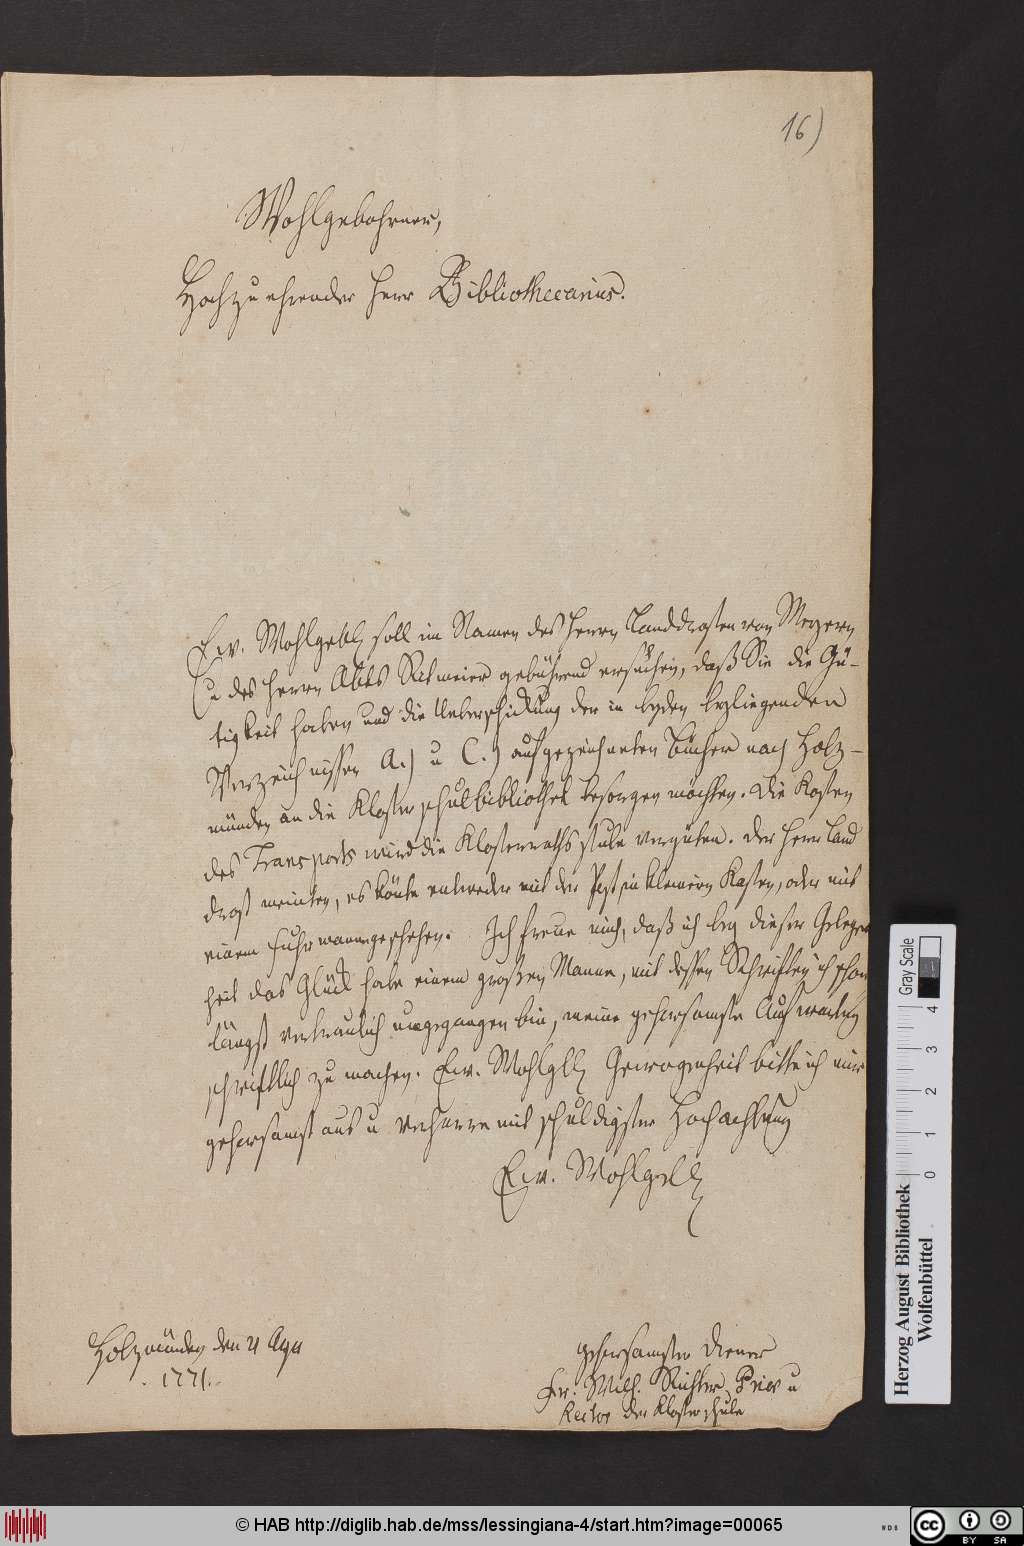 16)
Wohlgebohrner,
Hochzuehrender Herr Bibliothecarius.
Ew. Wohlgeb. soll im Namen des Herrn Landdrosten von Meyern
u des Herrn Abts Ritmeier gebührend ersuchen, daß Sie die Gü-
tigkeit haben und die Ueberschickung der in beyden beyliegenden
Verzeichnissen A.) u C.) aufgezeichneten Bücher nach Holz-
münden an die Klosterschulbibliothek besorgen möchten. Die Kosten
des Transports wird die Klosterrathsstube vergüten. Der Herr Land
drost meinten, es könte entweder mit der Post, in kleinern Kasten, oder mit
einem Fuhrmann geschehen. Ich freue mich, daß ich bey dieser Gelegen
heit das Glück habe einem großen Manne, mit dessen Schriften ich schon
längst vertraulich umgegangen bin, meine gehorsamste Aufwartung
schriftlich zu machen. Ew. Wohlgb. Gewogenheit bitte ich mir
gehorsamst aus u verharre mit schuldigster Hochachtung
Ew. Wohlgeb.
Holzmünden den 21
1771.
gehorsamster Diener
Fr. Wilh. Richter, Prior u
Rector der Klosterschule
Gray Scale
0 1 2 3 4
Herzog August Bibliothek
Wolfenbüttel
© HAB http://diglib.hab.de/mss/lessingiana-4/start.htm?image=00065
WDB
cc BY SA